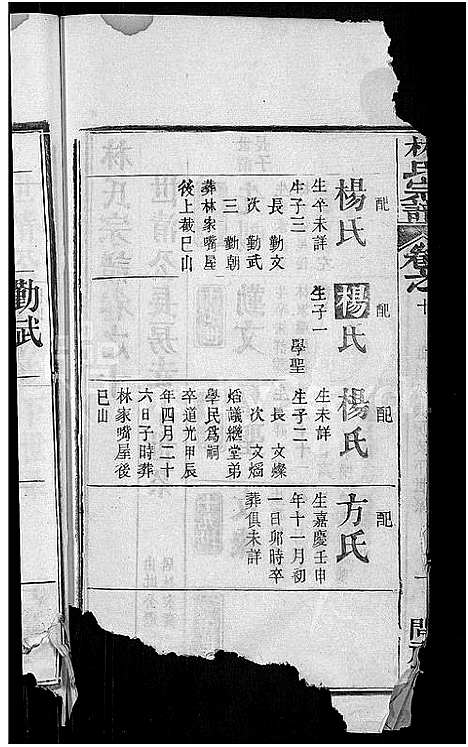 林氏宗譜
卷之十
配
楊氏
生卒未詳
生子三
長 勤文
次 勤武
三 勤朝
葬林家嘴屋
後上截巳山
配
楊氏
生子一
學聖
配
楊氏
生未詳
生子二
長 文燦
次 文熖
熖議繼堂弟
學民爲嗣
卒道光甲辰
年四月二十
六日子時葬
林家嘴屋後
巳山
配
方氏
生嘉慶壬申
年十一月初
一日卯時卒
葬俱未詳
勤武